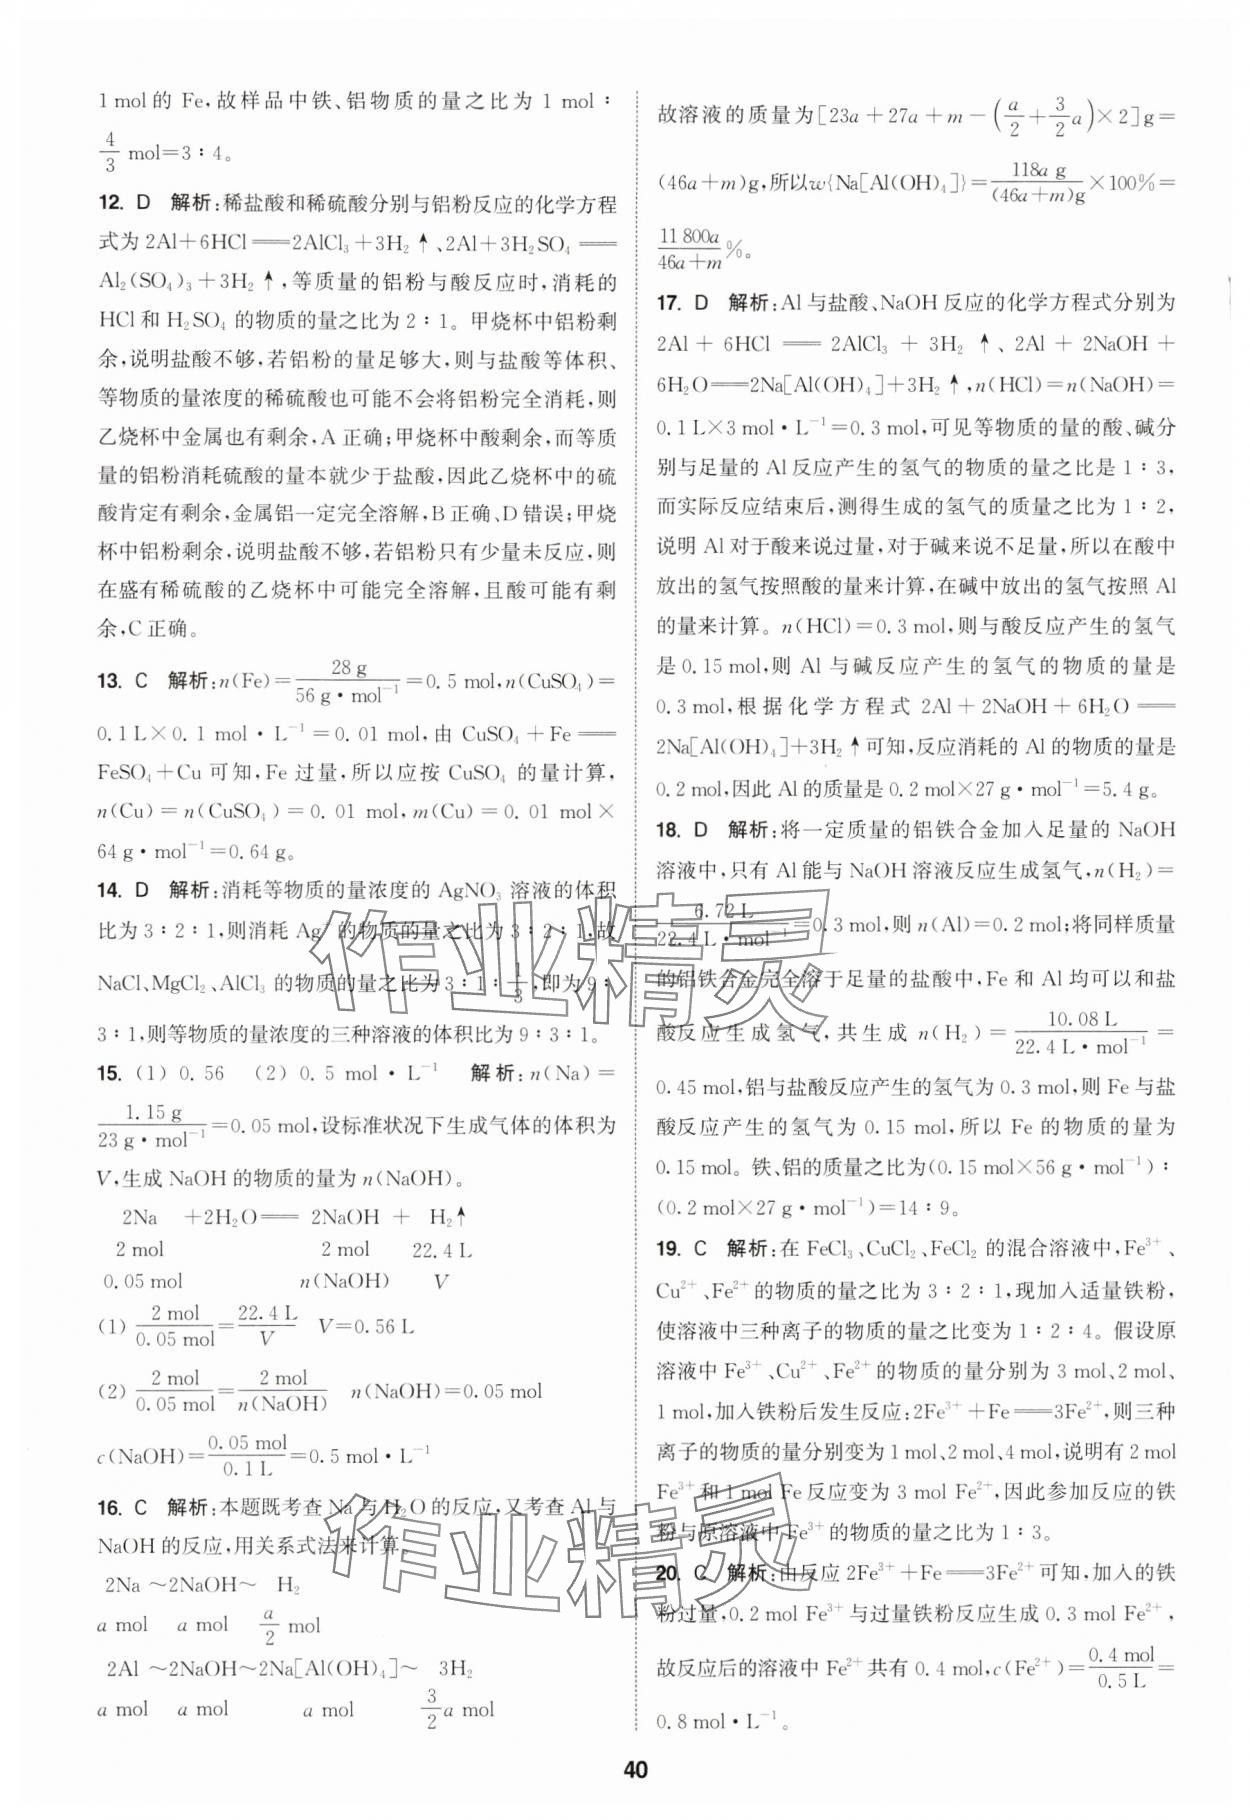 1 mol的 Fe,故样品中铁、铝物质的量之比为 1 mol∶
4/3 mol=3∶4。
12. D 解析:稀盐酸和稀硫酸分别与铝粉反应的化学方程
式为 2Al+6HCl══2AlCl₃+3H₂↑、2Al+3H₂SO₄══
Al₂(SO₄)₃+3H₂↑,等质量的铝粉与酸反应时,消耗的
HCl和 H₂SO₄ 的物质的量之比为 2∶1。甲烧杯中铝粉剩
余,说明盐酸不够,若铝粉的量足够大,则与盐酸等体积、
等物质的量浓度的稀硫酸也可能不会将铝粉完全消耗,则
乙烧杯中金属也有剩余,A 正确;甲烧杯中酸剩余,而等质
量的铝粉消耗硫酸的量本就少于盐酸,因此乙烧杯中的硫
酸肯定有剩余,金属铝一定完全溶解,B 正确、D 错误;甲烧
杯中铝粉剩余,说明盐酸不够,若铝粉只有少量未反应,则
在盛有稀硫酸的乙烧杯中可能完全溶解,且酸可能有剩
余,C 正确。
13. C 解析:n(Fe)=28 g/56 g·mol⁻¹=0.5 mol,n(CuSO₄)=
0.1 L×0.1 mol·L⁻¹=0.01 mol,由 CuSO₄+Fe══
FeSO₄+Cu 可知,Fe 过量,所以应按 CuSO₄ 的量计算,
n(Cu)=n(CuSO₄)=0.01 mol,m(Cu)=0.01 mol×
64 g·mol⁻¹=0.64 g。
14. D 解析:消耗等物质的量浓度的 AgNO₃ 溶液的体积
比为 3∶2∶1,则消耗 Ag⁺的物质的量之比为 3∶2∶1,故
NaCl、MgCl₂、AlCl₃ 的物质的量之比为 3∶1∶1/3,即为 9∶
3∶1,则等物质的量浓度的三种溶液的体积比为 9∶3∶1。
15. (1) 0.56 (2) 0.5 mol·L⁻¹ 解析:n(Na)=
1.15 g/23 g·mol⁻¹=0.05 mol,设标准状况下生成气体的体积为
V,生成 NaOH 的物质的量为 n(NaOH)。
2Na +2H₂O══ 2NaOH + H₂↑
2 mol 2 mol 22.4 L
0.05 mol n(NaOH) V
(1) 2 mol/0.05 mol=22.4 L/V V=0.56 L
(2) 2 mol/0.05 mol=2 mol/n(NaOH) n(NaOH)=0.05 mol
c(NaOH)=0.05 mol/0.1 L=0.5 mol·L⁻¹
16. C 解析:本题既考查 Na 与 H₂O 的反应,又考查 Al 与
NaOH 的反应,用关系式法来计算。
2Na ~2NaOH~ H₂
a mol a mol a/2 mol
2Al ~2NaOH~2Na[Al(OH)₄]~ 3H₂
a mol a mol a mol 3/2 a mol
故溶液的质量为[23a+27a+m-(a/2+3/2 a)×2]g=
(46a+m)g,所以w{Na[Al(OH)₄]}=118a g/(46a+m)g×100%=
11 800a/46a+m%。
17. D 解析:Al 与盐酸、NaOH 反应的化学方程式分别为
2Al + 6HCl ══ 2AlCl₃ + 3H₂ ↑、2Al + 2NaOH +
6H₂O══2Na[Al(OH)₄]+3H₂↑,n(HCl)=n(NaOH)=
0.1 L×3 mol·L⁻¹=0.3 mol,可见等物质的量的酸、碱分
别与足量的 Al 反应产生的氢气的物质的量之比是 1∶3,
而实际反应结束后,测得生成的氢气的质量之比为 1∶2,
说明 Al 对于酸来说过量,对于碱来说不足量,所以在酸中
放出的氢气按照酸的量来计算,在碱中放出的氢气按照 Al
的量来计算。n(HCl)=0.3 mol,则与酸反应产生的氢气
是 0.15 mol,则 Al 与碱反应产生的氢气的物质的量是
0.3 mol,根据化学方程式 2Al+2NaOH+6H₂O══
2Na[Al(OH)₄]+3H₂↑可知,反应消耗的 Al 的物质的量是
0.2 mol,因此 Al 的质量是 0.2 mol×27 g·mol⁻¹=5.4 g。
18. D 解析:将一定质量的铝铁合金加入足量的 NaOH
溶液中,只有 Al能与 NaOH 溶液反应生成氢气,n(H₂)=
6.72 L/22.4 L·mol⁻¹=0.3 mol,则 n(Al)=0.2 mol;将同样质量
的铝铁合金完全溶于足量的盐酸中,Fe 和 Al 均可以和盐
酸反应生成氢气,共生成 n(H₂)=10.08 L/22.4 L·mol⁻¹=
0.45 mol,铝与盐酸反应产生的氢气为 0.3 mol,则 Fe 与盐
酸反应产生的氢气为 0.15 mol,所以 Fe 的物质的量为
0.15 mol。铁、铝的质量之比为(0.15 mol×56 g·mol⁻¹)∶
(0.2 mol×27 g·mol⁻¹)=14∶9。
19. C 解析:在 FeCl₃、CuCl₂、FeCl₂ 的混合溶液中,Fe³⁺、
Cu²⁺、Fe²⁺的物质的量之比为 3∶2∶1,现加入适量铁粉,
使溶液中三种离子的物质的量之比变为 1∶2∶4。假设原
溶液中 Fe³⁺、Cu²⁺、Fe²⁺的物质的量分别为 3 mol、2 mol、
1 mol,加入铁粉后发生反应:2Fe³⁺+Fe══3Fe²⁺,则三种
离子的物质的量分别变为 1 mol、2 mol、4 mol,说明有 2 mol
Fe³⁺和 1 mol Fe 反应变为 3 mol Fe²⁺,因此参加反应的铁
粉与原溶液中 Fe³⁺的物质的量之比为 1∶3。
20. C 解析:由反应 2Fe³⁺+Fe══3Fe²⁺可知,加入的铁
粉过量,0.2 mol Fe³⁺与过量铁粉反应生成 0.3 mol Fe²⁺,
故反应后的溶液中 Fe²⁺共有 0.4 mol,c(Fe²⁺)=0.4 mol/0.5 L=
0.8 mol·L⁻¹。
作业精灵
作业精灵
40